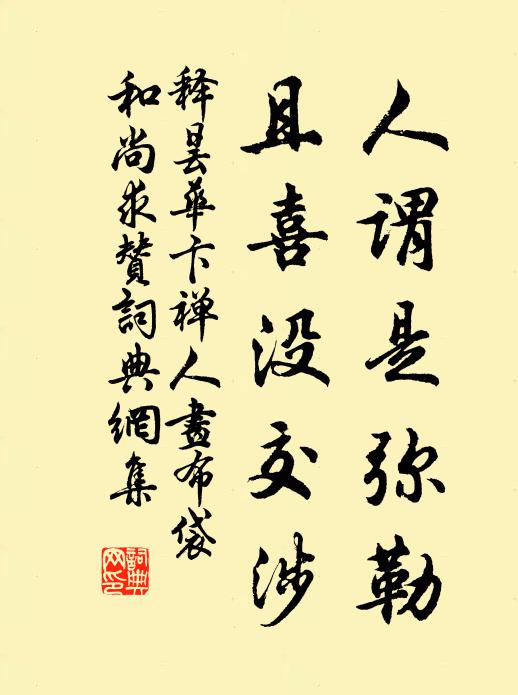 人谓是弥勒
且喜没交涉
释昙华卞禅人畫布袋
和尚求赞詞典網集
詞典网印